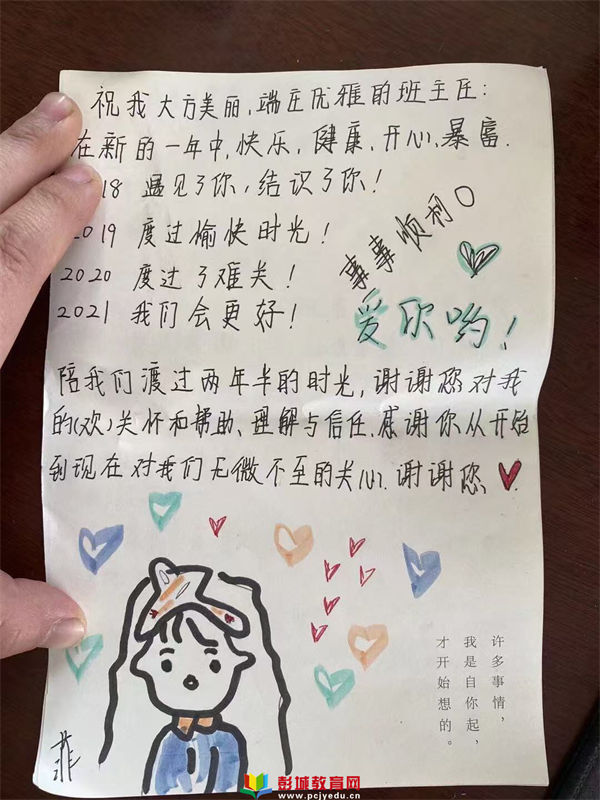 祝我大方美丽,端庄优雅的班主任:
在新的一年中,快乐,健康,开心,暴富.
18 遇见了你,结识了你!
2019 度过愉快时光!
2020 度过了难关!
2021 我们会更好!
事事顺利
爱你哟!
陪我们渡过两年半的时光,谢谢您对我
的(欢)关怀和帮助、理解与信任.感谢你从开始
到现在对我们无微不至的关心.谢谢您
许多事情,
我是自你起,
才开始想的。
菲
彭城教育网
www.pcjyedu.cn